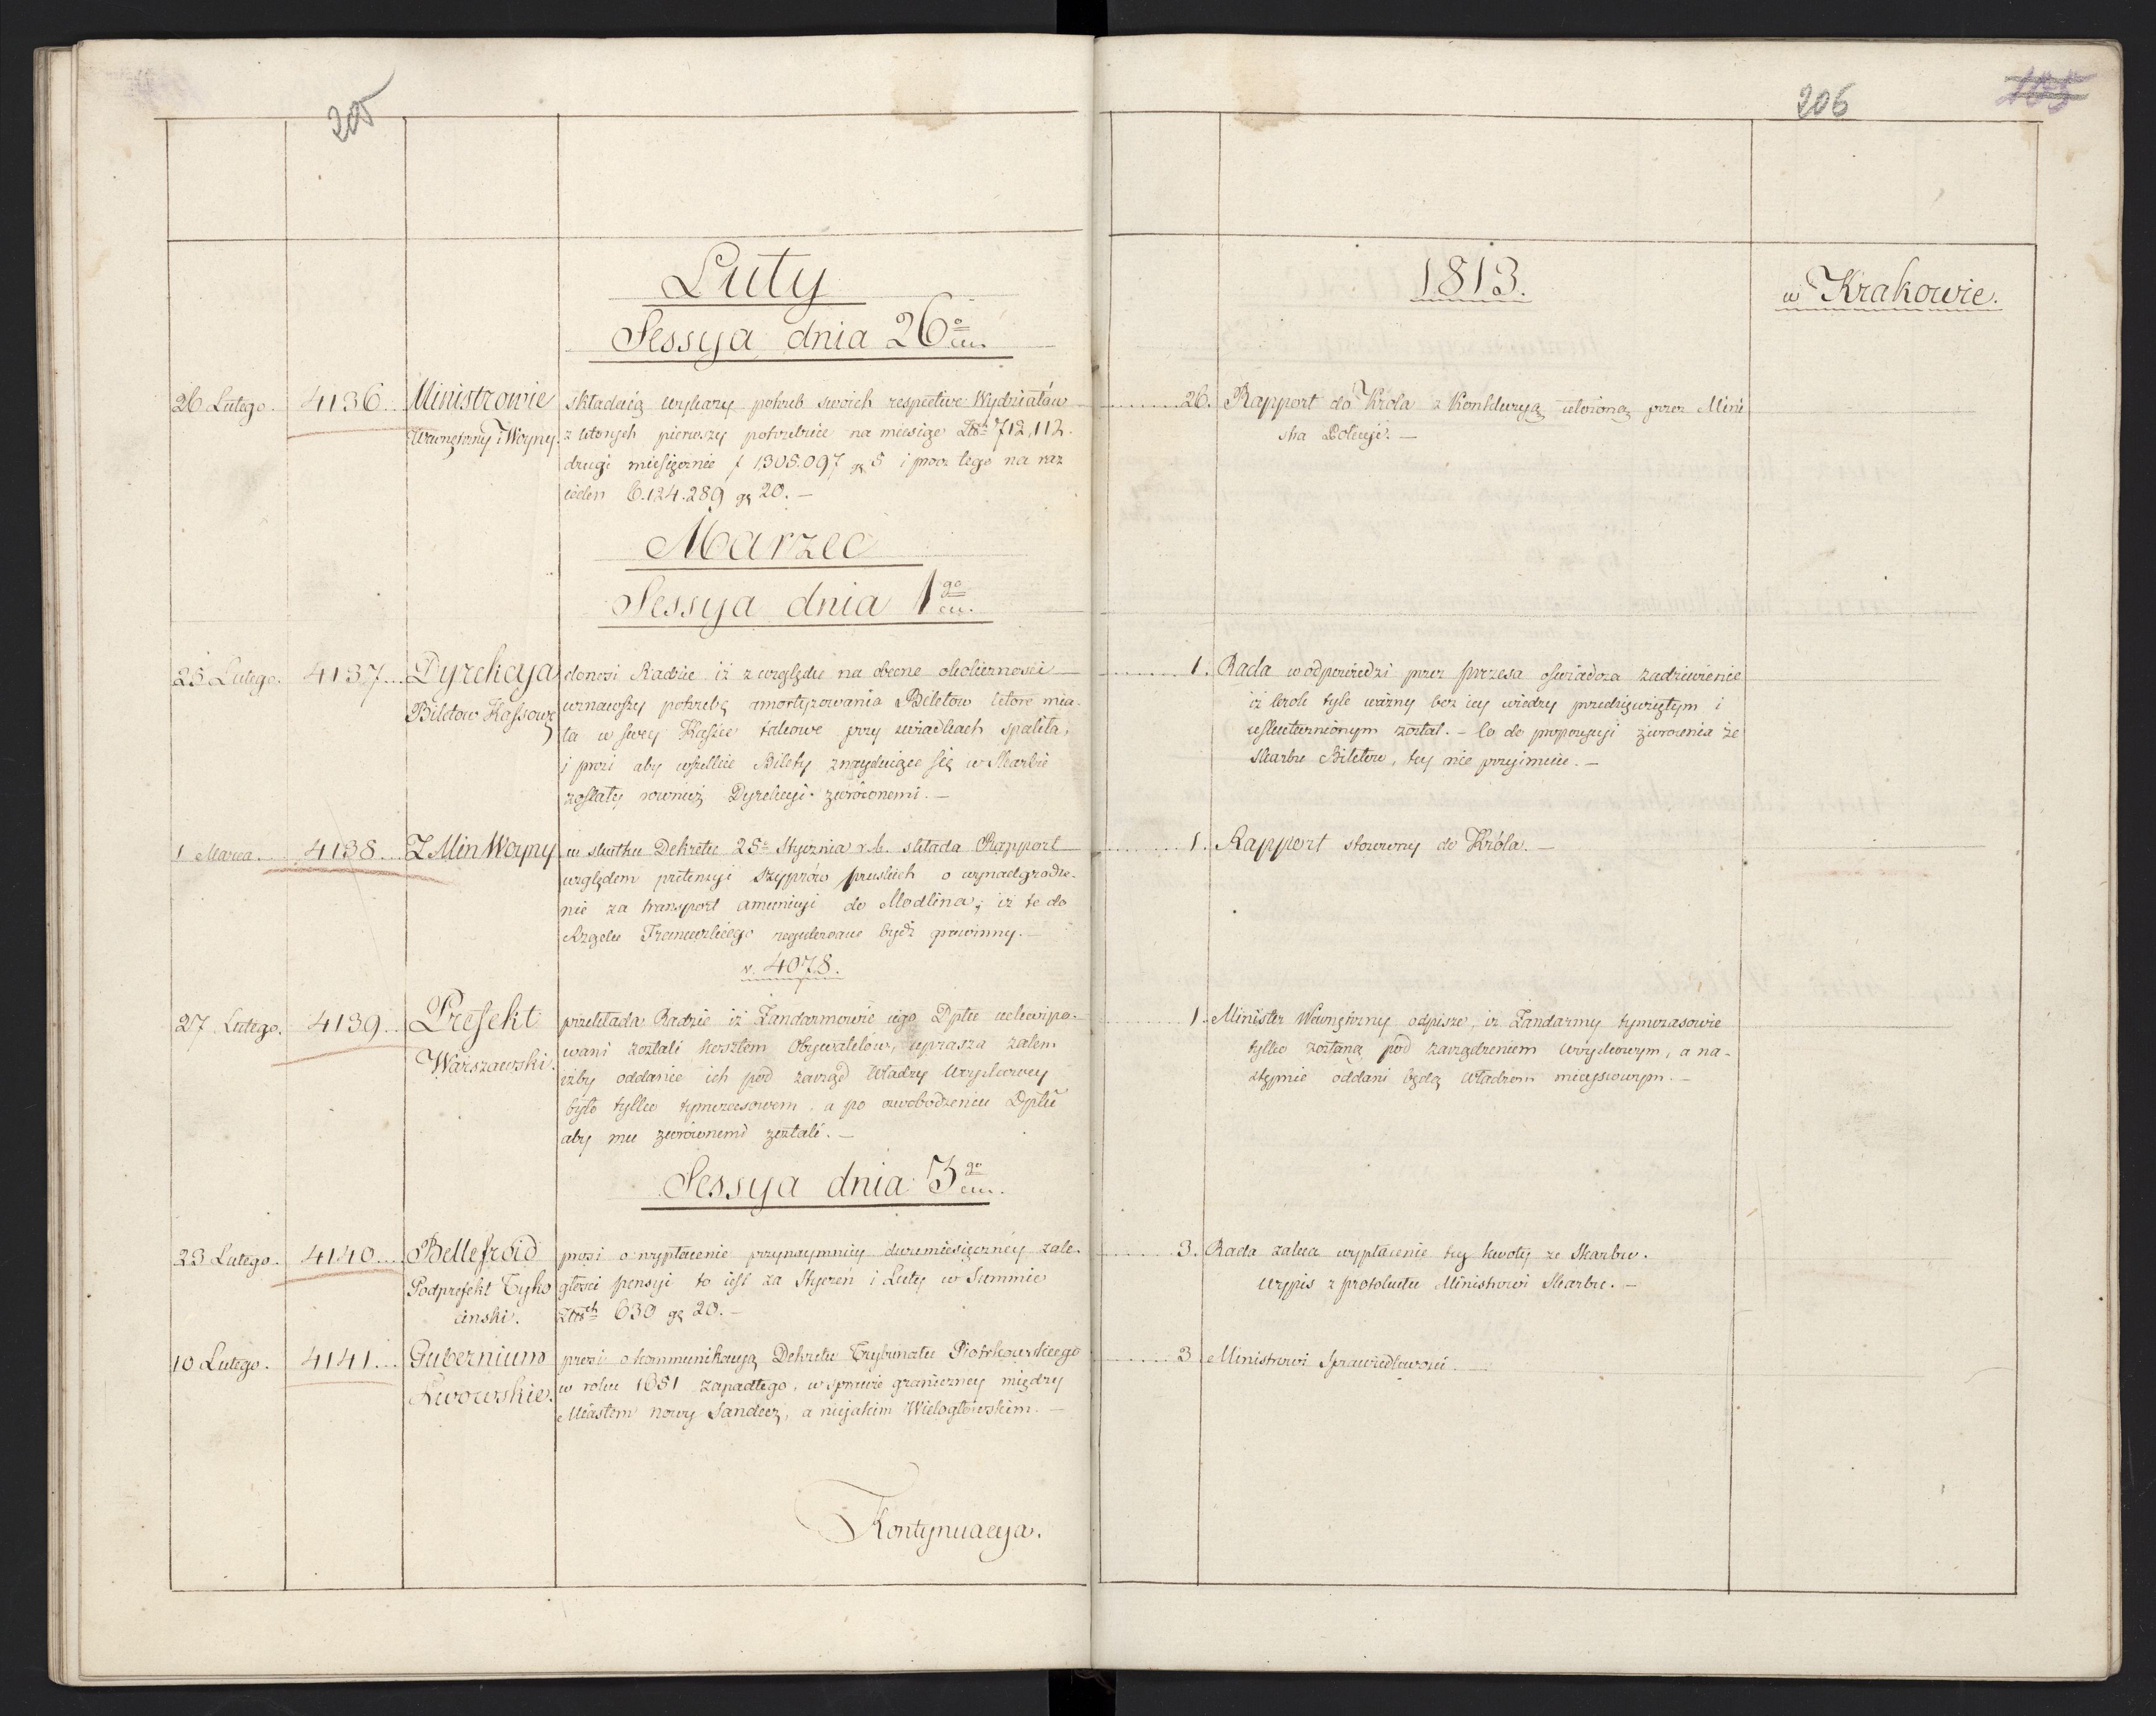 205
Luty
Sessya dnia 26go cu.
26 Lutego. 4136. Ministrowie składaią wykazy potrzeb swoich respective Wydziałów
Wewnętrzny i Woyny. z których pierwszy potrzebuie na miesiąc Złch 712,112.
drugi miesięcznie f 1,305.097 gr 5 i procz tego na raz
ieden 6.124.289 gr 20. —
Marzec
Sessya dnia 1go cu.
25 Lutego. 4137... Dyrekcya donosi Radzie iż z względu na obecne okoliczności
Biletow Kassowych uznawszy potrzebę amortyzowania Biletow które mia-
ła w swey Kassie takowe przy swiadkach spaliła,
i prosi aby wszelkie Bilety znayduiące się w Skarbie
zostały rowniez Dyrekcyi zwróconemi. —
1 Marca. 4138... Z. Min Woyny w skutku Dekretu 25o Stycznia r.b. składa Rapport
względem pretensyi Szyprów pruskich o wynadgrodze-
nie za transport amunicyi do Modlina; iż te do
Rządu Francuzkiego regulowane bydź powinny. —
v. 4078.
27 Lutego. 4139... Prefekt przekłada Radzie iż Żandarmowie iego Dptu uekwipo-
Warszawski. wani zostali kosztem Obywatelow, uprasza zatem
iżby oddanie ich pod zarząd Władzy Woyskowey
było tylko tymczasowem, a po oswobodzeniu Dptu
aby mu zwróconemi zostali. —
Sessya dnia 3go cu.
23 Lutego. 4140... Bellefroid prosi o wypłacenie przynaymniey dwumiesięczney zale-
Podprefekt Tyko głości pensyi to iest za Styczeń i Luty w Summie
cinski. Złch 630 gr 20. —
10 Lutego. 4141... Gubernium prosi o kommunikacyą Dekretu Trybunału Piotrkowskiego
Lwowskie. w roku 1651 zapadłego, w sprawie graniczney między
Miastem Nowy Sandecz, a niejakim Wielogłowskim. —
Kontynuacya.
206
105
1813.
w Krakowie.
26. Rapport do Króla z Konkluzyą ułożoną przez Mini
stra Policyi. —
1. Rada w odpowiedzi przez prezesa oświadcza zadziwienie
iż krok tyle ważny bez iey wiedzy przedsięwziętym i
uskutecznionym został. — Co do propozycyi zwrócenia ze
Skarbu Biletow, tey nie przyimuie. —
1. Rapport stosowny do Króla. —
1. Minister Wewnętrzny odpisze, iż Żandarmy tymczasowie
tylko zostaną pod zarządzeniem woyskowym, a na-
stępnie oddani będą władzom mieyscowym. —
3. Rada zaleca wypłacenie tey kwoty ze Skarbu.
Wypis z protokułu Ministrowi Skarbu. —
3. Ministrowi Sprawiedliwości.